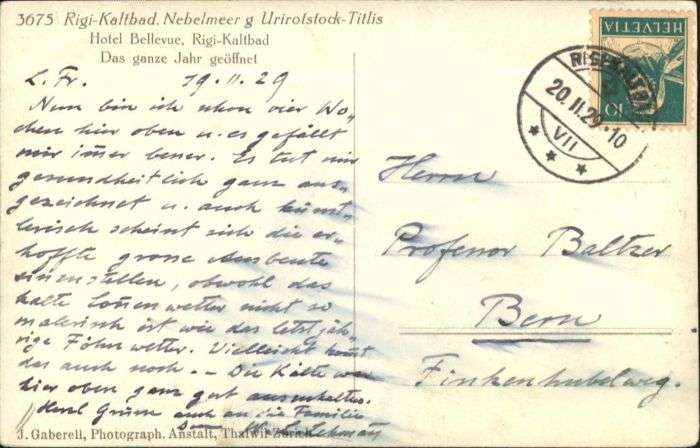 3675 Rigi-Kaltbad. Nebelmeer g Urirotstock-Titlis
Hotel Bellevue, Rigi-Kaltbad
Das ganze Jahr geöffnet
L. Fr. 19.11.29
Nun bin ich schon vier Wo-
chen hier oben u. es gefällt
mir immer besser. Es tut mir
gesundheitlich ganz aus-
gezeichnet u. auch künst-
lerisch scheint sich die er-
hoffte grosse Ausbeute
einzustellen, obwohl das
kalte Sonnenwetter nicht so
malerisch ist wie das letztjäh-
rige Föhnwetter. Vielleicht kommt
das auch noch. – Die Kälte war
hier oben ganz gut auszuhalten.
Herzl Grüsse auch an die Familie
J. Gaberell, Photograph. Anstalt, Thalwil-Zürich
HELVETIA
10
20.II.29.-10
VII
Herrn
Professor Baltzer
Bern
Finkenhubelweg.